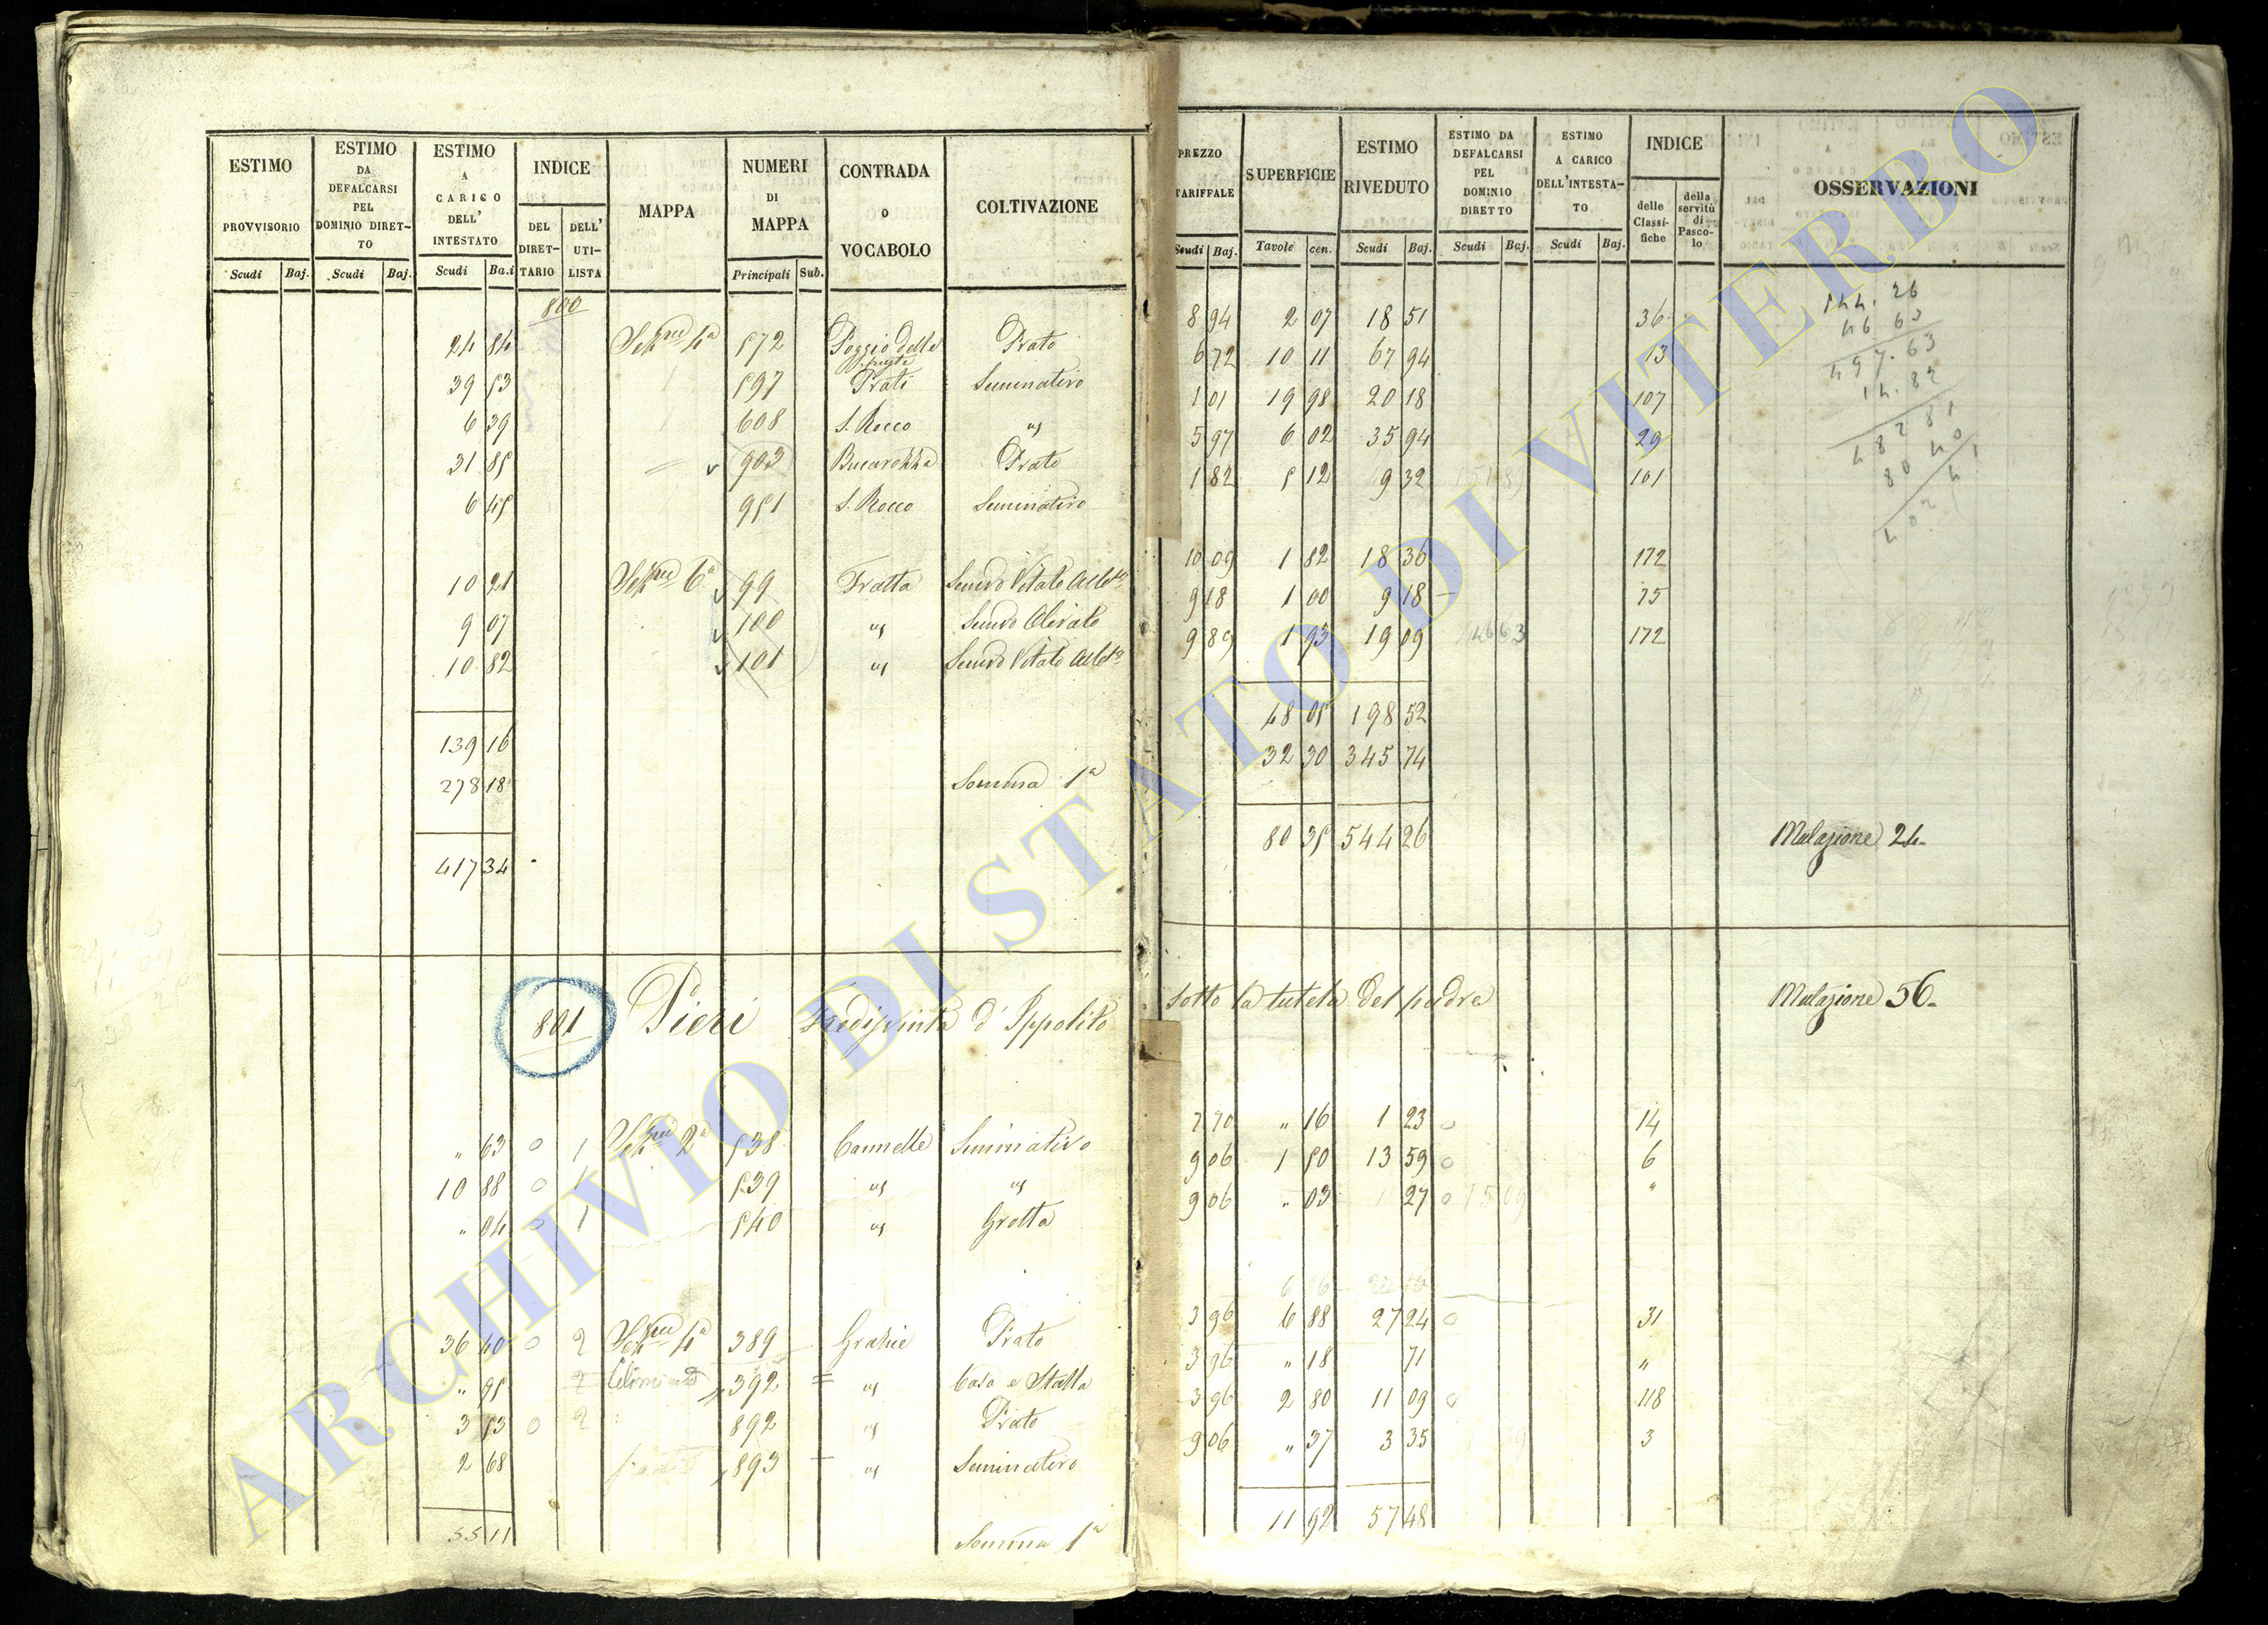 ESTIMO PROVVISORIO Scudi Baj.
ESTIMO DA DEFALCARSI PEL DOMINIO DIRET-TO Scudi Baj.
ESTIMO A CARICO DELL' INTESTATO Scudi Ba.i
INDICE DEL DIRET-TARIO DELL' UTI-LISTA
MAPPA
NUMERI DI MAPPA Principali Sub.
CONTRADA O VOCABOLO
COLTIVAZIONE
800
24 84 Sez.ne 4a 572 Poggio delle Prato
39 53 597 Prati Seminativo
6 39 608 S. Rocco "
31 85 903 Prato
6 45 951 S. Rocco Seminativo
10 21 Sez.ne 6a 99 Fratta
9 07 100 " Olivato
10 82 101 "
139 16
278 18 Somma 1a
417 34
801 Pieri d' Ippolito
" 63 0 1 Sez.ne 2a 538 Cannelle Seminativo
10 88 0 1 539 " "
" 04 0 1 540 " Grotta
36 40 0 2 Sez.ne 4a 389 Grazie Prato
" 95 2 392 " Casa e Stalla
3 53 0 2 892 " Prato
2 68 893 " Seminativo
55 11 Somma 1a
PREZZO TARIFFALE Scudi Baj.
SUPERFICIE Tavole cen.
ESTIMO RIVEDUTO Scudi Baj.
ESTIMO DA DEFALCARSI PEL DOMINIO DIRETTO Scudi Baj.
ESTIMO A CARICO DELL'INTESTA-TO Scudi Baj.
INDICE delle Classi-fiche della servitù di Pasco-lo
OSSERVAZIONI
8 94 2 07 18 51 36
6 72 10 11 67 94 13
1 01 19 98 20 18 107
5 97 6 02 35 94 29
1 82 5 12 9 32 101
10 09 1 82 18 36 172
9 18 1 00 9 18 75
9 89 1 93 19 09 46 63 172
48 05 198 52
32 30 345 74
80 35 544 26 Mutazione 24
544. 26
46 63
497. 63
14. 82
482 81
80 40
402 41
sotto la tutela del padre Mutazione 56
7 70 " 16 1 23 0 14
9 06 1 50 13 59 0 6
9 06 " 03 27 0 "
3 96 6 88 27 24 0 31
3 96 " 18 71 "
3 96 2 80 11 09 0 118
9 06 " 37 3 35 3
11 92 57 48
ARCHIVIO DI STATO DI VITERBO